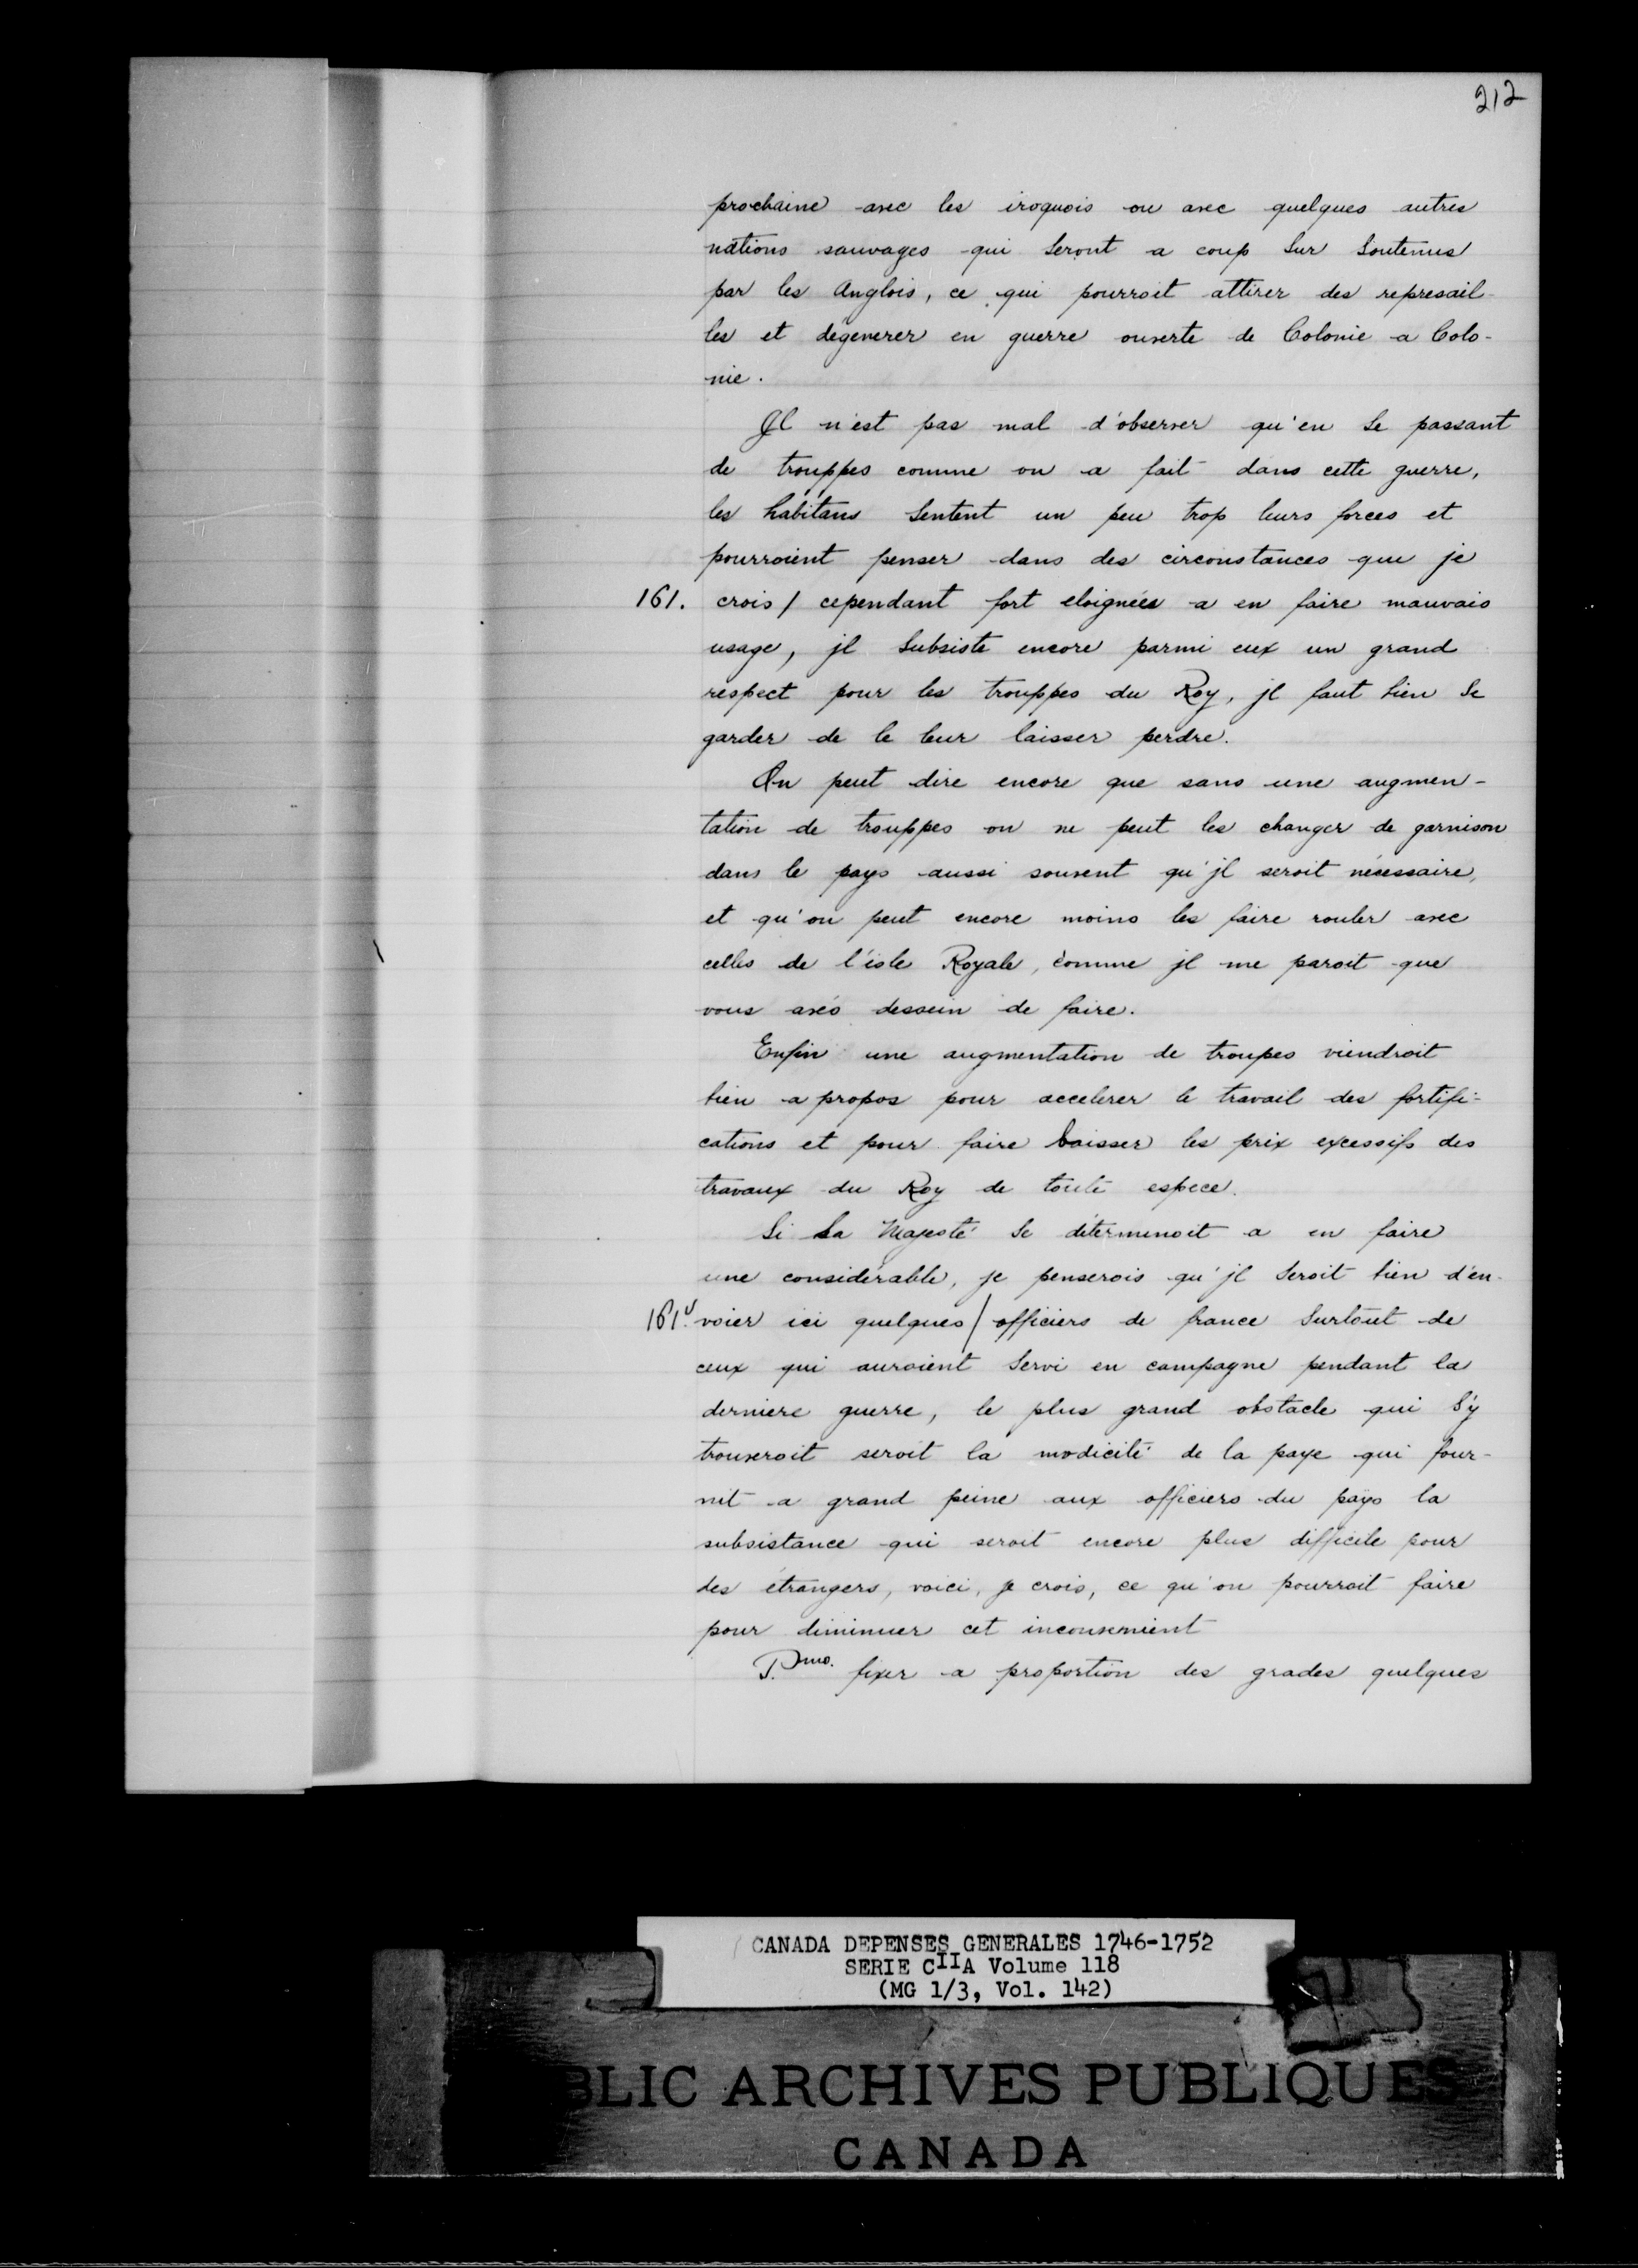 212
prochaine avec les iroquois ou avec quelques autres
nations sauvages qui seront a coup sur soutenus
par les Anglois, ce qui pourroit attirer des represail-
les et dégenerer en guerre ouverte de Colonie a Colo-
nie.
Il n'est pas mal d'observer qu'en se passant
de trouppes comme on a fait dans cette guerre,
les habitans sentent un peu trop leurs forces et
pourroient penser dans des circonstances que je
161. crois / cependant fort eloignées a en faire mauvais
usage, jl subsiste encore parmi eux un grand
respect pour les trouppes du Roy, jl faut bien se
garder de le leur laisser perdre.
On peut dire encore que sans une augmen-
tation de trouppes on ne peut les changer de garnison
dans le pays aussi souvent qu'jl seroit nécessaire,
et qu'on peut encore moins les faire rouler avec
celles de l'isle Royale, comme jl me paroit que
vous avés dessein de faire.
Enfin une augmentation de troupes viendroit
bien a propos pour accelerer le travail des fortifi-
cations et pour faire baisser les prix excessifs des
travaux du Roy de toute espece.
Si Sa Majesté se déterminoit a en faire
une considérable, je penserois qu'jl seroit bien d'en-
161v. voier ici quelques / officiers de france surtout de
ceux qui auroient servi en campagne pendant la
derniere guerre, le plus grand obstacle qui s'y
trouveroit seroit la modicité de la paye qui four-
nit a grand peine aux officiers du pays la
subsistance qui seroit encore plus difficile pour
des étrangers, voici, je crois, ce qu'on pourroit faire
pour diminuer cet inconvenient
Pmo. fixer a proportion des grades quelques
CANADA DEPENSES GENERALES 1746-1752
SERIE CIIA Volume 118
(MG 1/3, Vol. 142)
BLIC ARCHIVES PUBLIQUES
CANADA